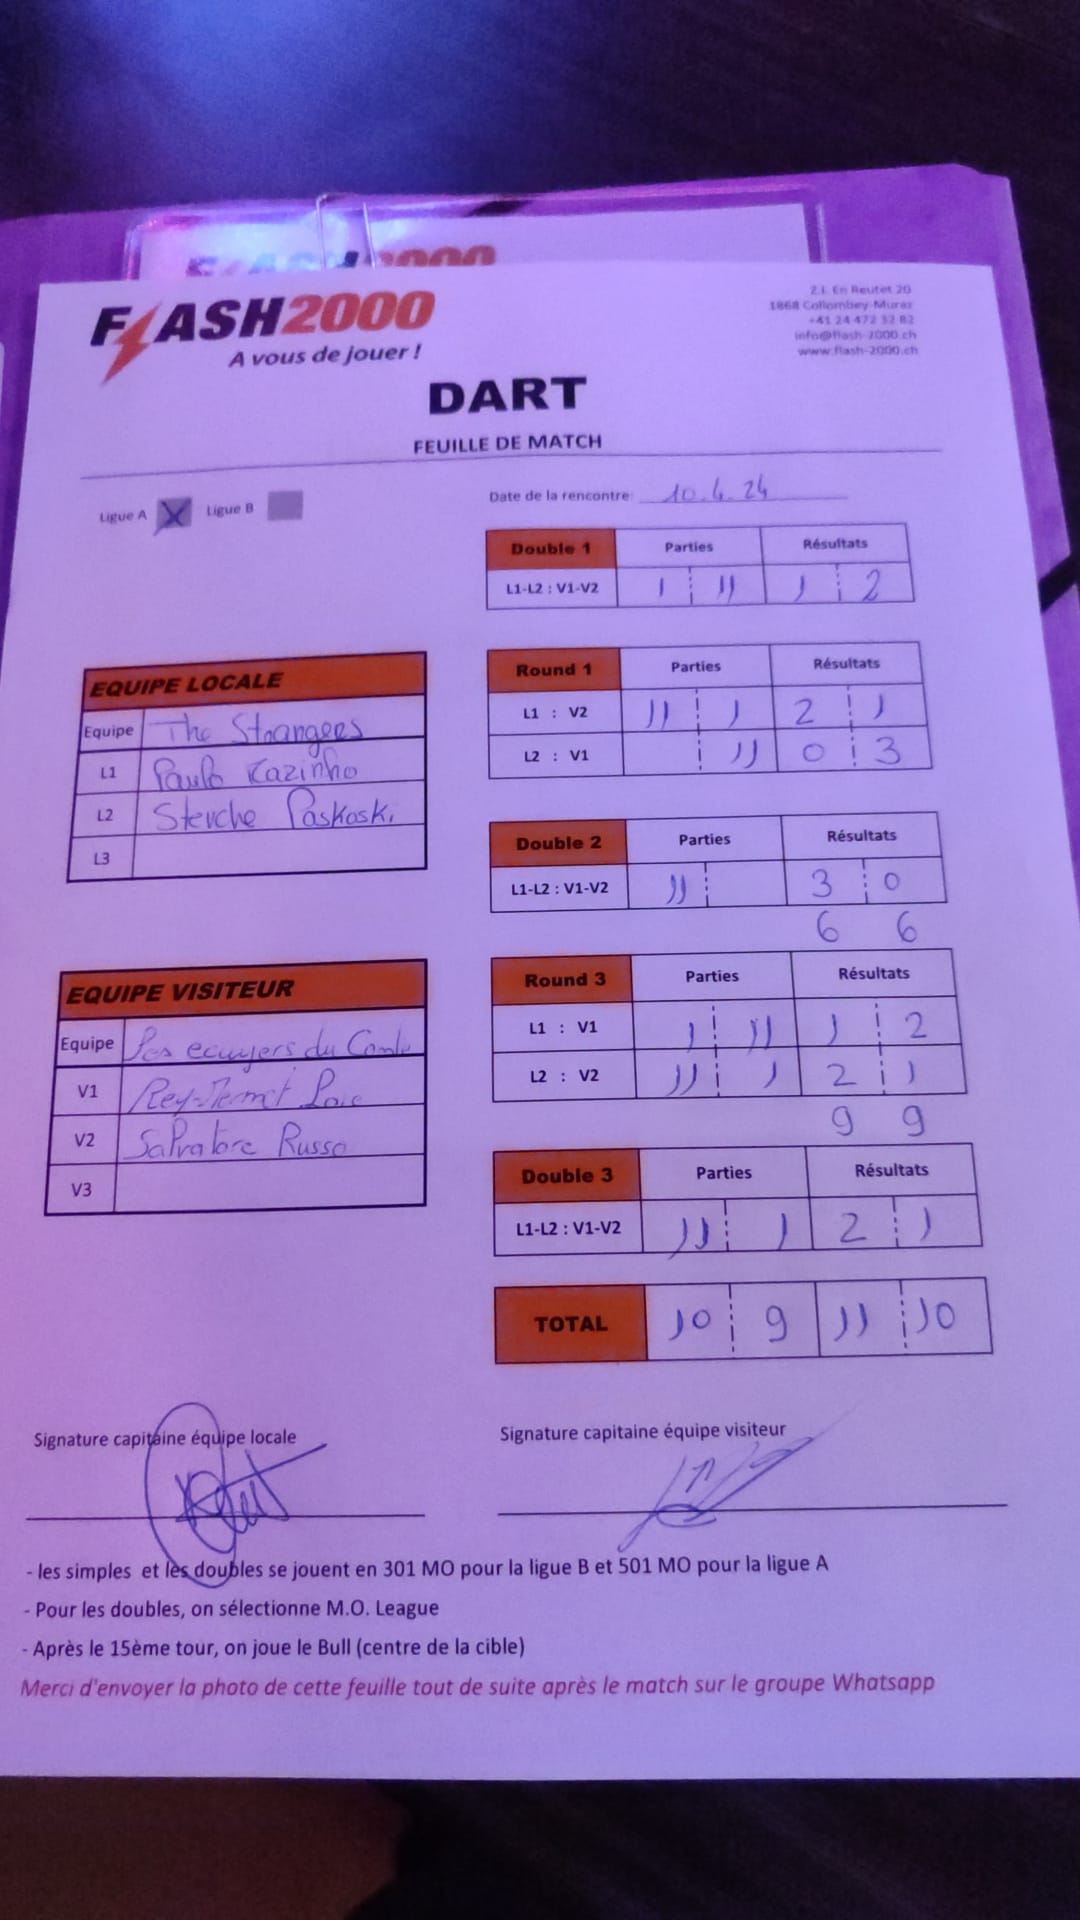 FLASH2000
FLASH2000
A vous de jouer !
Z.I. En Reutet 20
1868 Collombey-Muraz
+41 24 472 32 82
info@flash-2000.ch
www.flash-2000.ch
DART
FEUILLE DE MATCH
Ligue A X Ligue B
Date de la rencontre: 10.4.24
Double 1 Parties Résultats
L1-L2 : V1-V2 I II 1 2
EQUIPE LOCALE
Equipe The Strangers
L1 Paulo Cazinho
L2 Stevche Paskoski
L3
Round 1 Parties Résultats
L1 : V2 II I 2 1
L2 : V1 II 0 3
Double 2 Parties Résultats
L1-L2 : V1-V2 II 3 0
6 6
EQUIPE VISITEUR
Equipe Les ecuyers du Comte
V1 Rey-Mermet
V2 Salvatore Russo
V3
Round 3 Parties Résultats
L1 : V1 I II 1 2
L2 : V2 II I 2 1
9 9
Double 3 Parties Résultats
L1-L2 : V1-V2 II I 2 1
TOTAL 10 9 11 10
Signature capitaine équipe locale
Signature capitaine équipe visiteur
- les simples et les doubles se jouent en 301 MO pour la ligue B et 501 MO pour la ligue A
- Pour les doubles, on sélectionne M.O. League
- Après le 15ème tour, on joue le Bull (centre de la cible)
Merci d'envoyer la photo de cette feuille tout de suite après le match sur le groupe Whatsapp